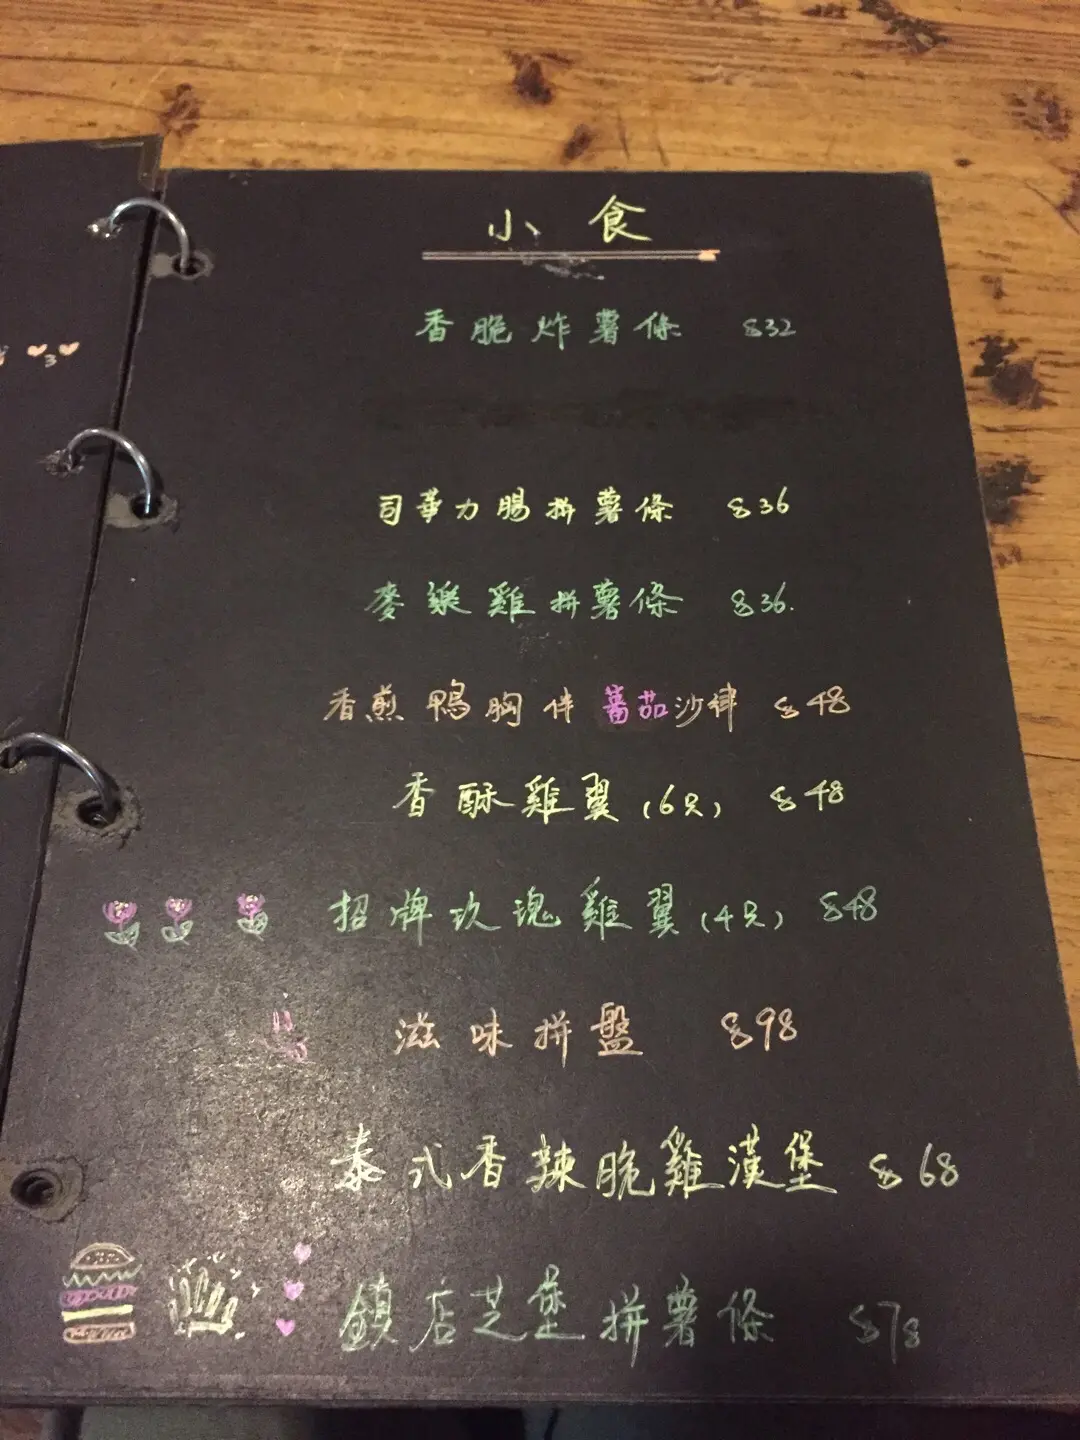 小食
香脆炸薯條 $32
司華力腸拼薯條 $36
麥樂雞拼薯條 $36.
香煎鴨胸伴蕃茄沙律 $48
香酥雞翼(6只) $48
招牌玫瑰雞翼(4只) $48
滋味拼盤 $98
泰式香辣脆雞漢堡 $68
鎮店芝堡拼薯條 $78
3